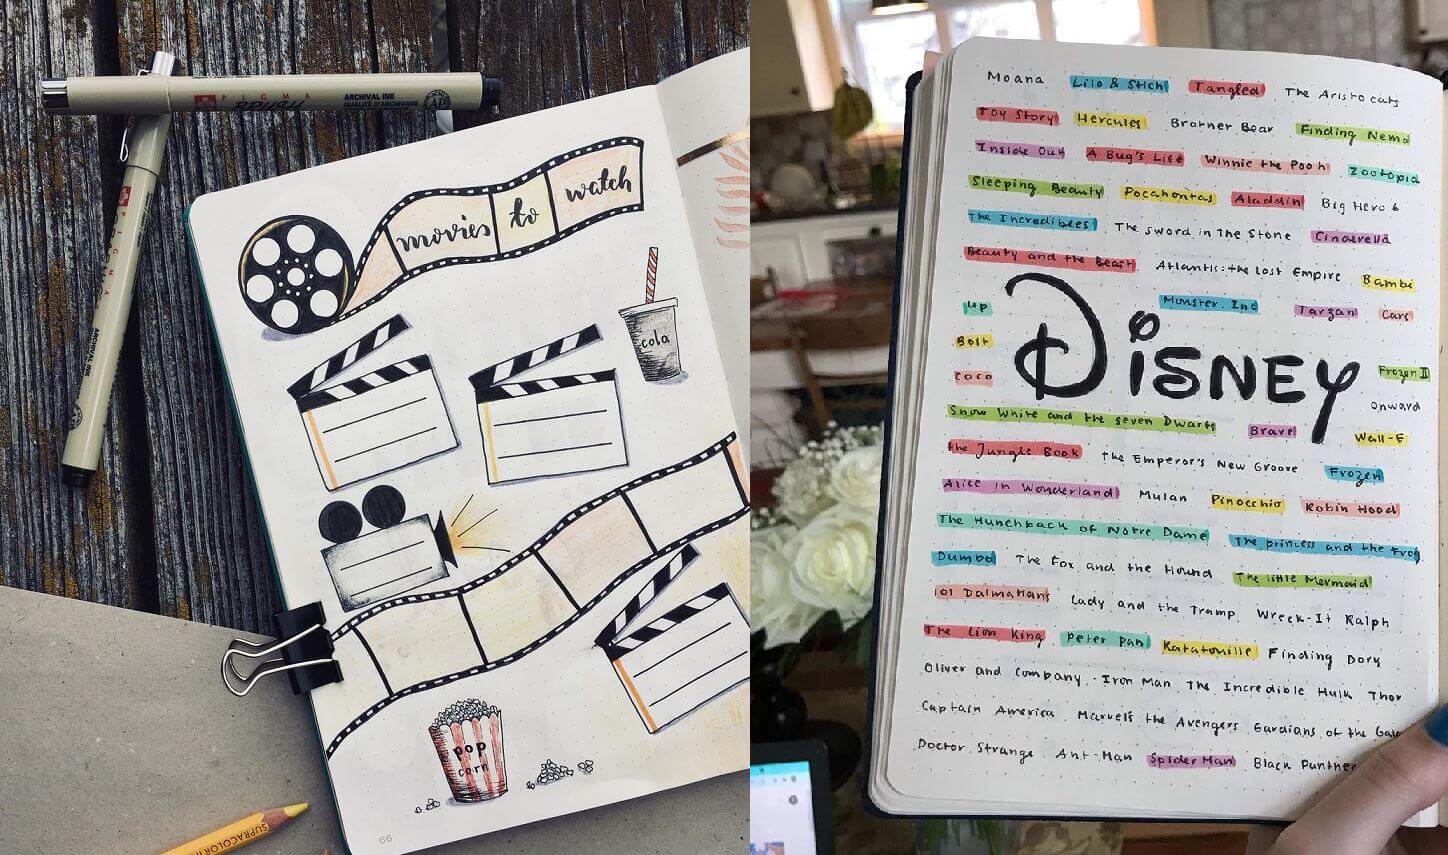 PIGMA BRUSH
ARCHIVAL INK
QUALITÉ D'ARCHIVAGE
AP
PIGMA
ARCHIVAL INK
movies to watch
cola
pop
corn
66
SUPRACOLOR
Moana Lilo & Stich Tangled The Aristocats
Toy Story Hercules Brotner Bear Finding Nemo
Inside Out A Bug's Life Winnie the Pooh Zootopia
Sleeping Beauty Pocahontas Aladdin Big Hero 6
the Incredibles The sword in the Stone Cinderella
Beauty and the Beast Atlantis: the Lost Empire Bambi
Up Monster. Inc Tarzan Cars
Bolt
DISNEY
Frozen II
coco
onward
Snow White and the seven Dwarfs Brave Wall-E
the Jungle Book the Emperor's New Groove Frozen
Alice in Wonderland Mulan Pinocchio Robin Hood
The Hunchback of Notre Dame The princess and the Frog
Dumbo The Fox and the Hound The little Mermaid
101 Dalmatians Lady and the Tramp Wreck-It Ralph
The Lion King Peter Pan Ratatouille Finding Dory
Oliver and Company . Iron Man The Incredible Hulk Thor
Captain America Marvel's the Avengers Gardians of the Gala
Doctor Strange Ant-Man SpiderMan Black Panther